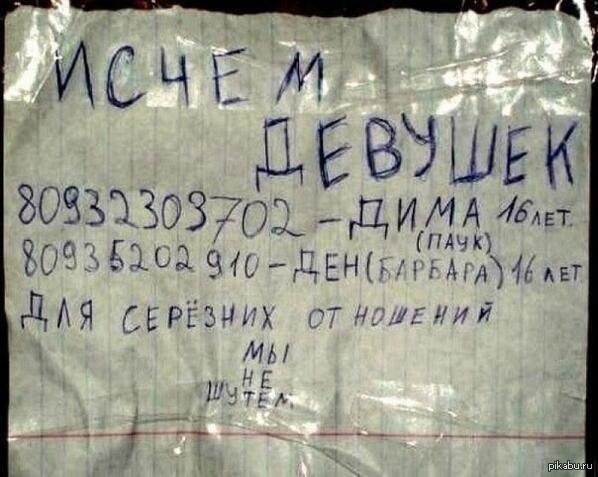 ИСЧЕМ
ДЕВУШЕК
80932303702 - ДИМА 16 лет.
(ПАУК)
80935202910 - ДЕН (БАРБАРА) 16 лет
ДЛЯ СЕРЁЗНИХ ОТНОШЕНИЙ
МЫ
НЕ
ШУТЕМ.
pikabu.ru